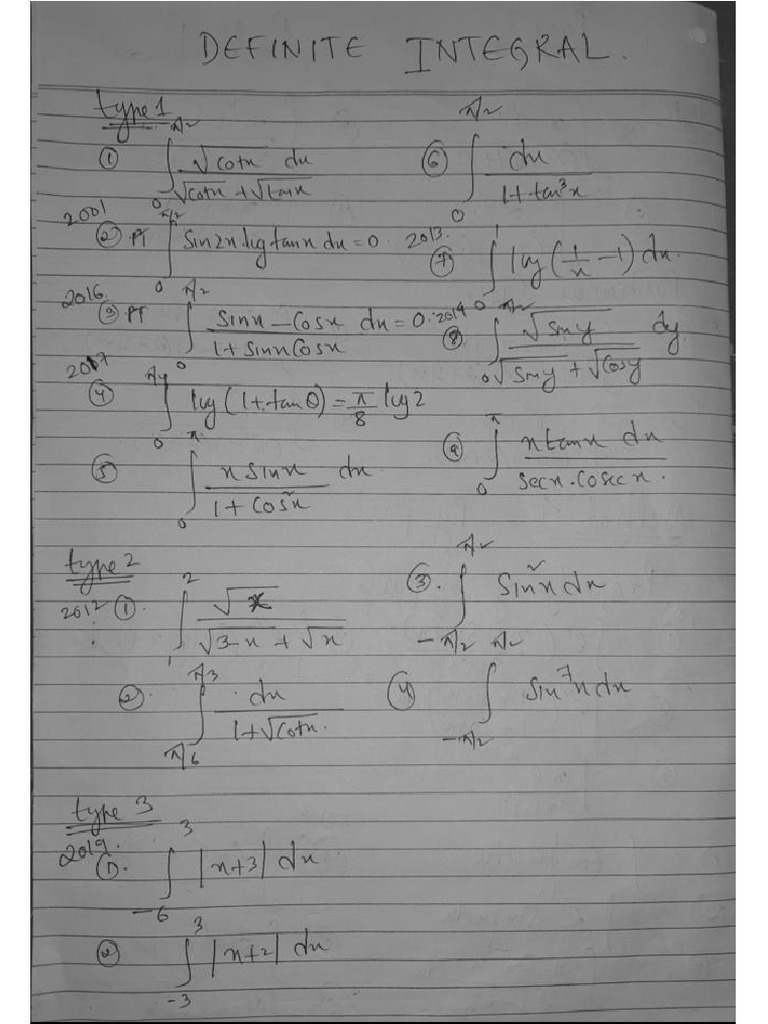 DEFINITE INTEGRAL.
type 1
① ∫₀^(π/2) √cotx dx / (√cotx + √tanx)
⑥ ∫₀^(π/2) dx / (1 + tan³x)
2001 ② PT ∫₀^(π/2) sin2x log tanx dx = 0.
2013. ⑦ ∫₀^1 log(1/x − 1) dx.
2016 ③ PT ∫₀^(π/2) (sinx − cosx) / (1 + sinx cosx) dx = 0.
2019 ⑧ ∫₀^(π/2) √siny / (√siny + √cosy) dy
2017 ④ ∫₀^(π/4) log(1 + tanθ) = π/8 log2
⑤ ∫₀^π x sinx / (1 + cos²x) dx
⑨ ∫₀^π x tanx dx / (secx . cosecx.)
type 2
2012 ①. ∫₁^2 √x / (√3−x + √x)
③. ∫₋π/2^(π/2) sin²x dx
②. ∫_(π/6)^(π/3) dx / (1 + √cotx.)
④ ∫₋π/2^(π/2) sin⁷x dx
type 3
2019. ①. ∫₋₆^3 |x+3| dx
② ∫₋₃^3 |x+2| dx